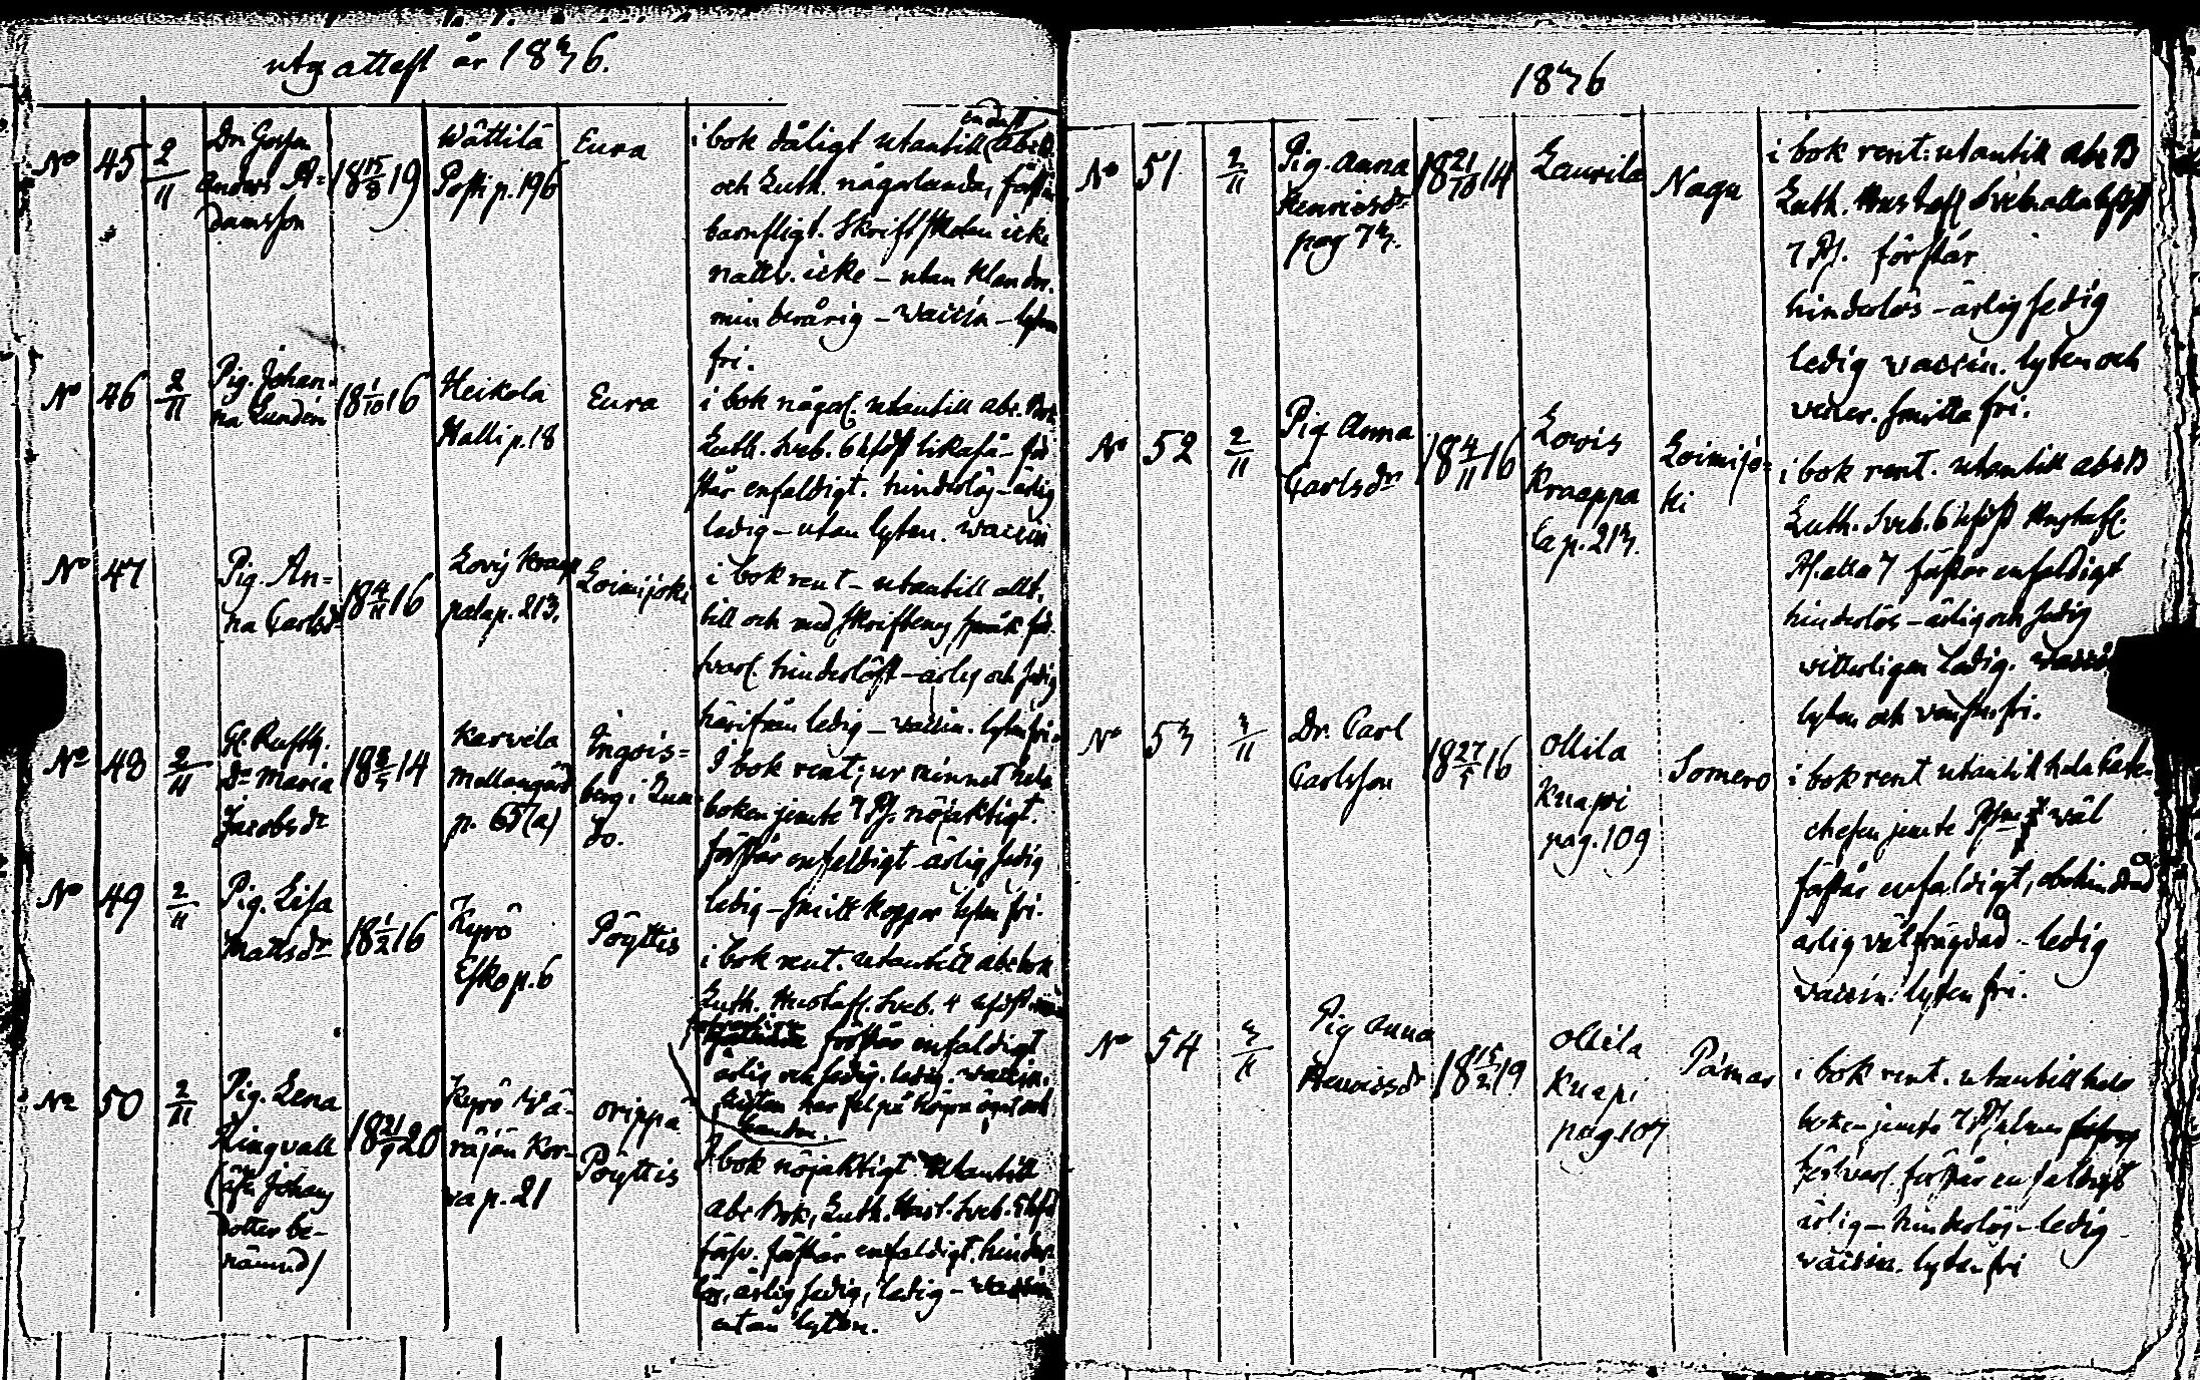 utg attest år 1836.
No 45 2/11 Dr. Gossen Anders A= damsson 18 15/8 19 Wättilä Posti p. 196 Eura
i bok dåligt utantill (abc B.
och Luth. någorlunda, förstår
barnsligt. Skriftskolan icke
nattv. icke - utan klander.
minderårig - vaccin - lyten
fri.
No 46 2/11 Pig. Johan= na Lundén 18 1/10 16 Heikola Halli p. 18 Eura
i bok någorl. utantill abc. Bok
Luth. Sveb. 6 h[...] likaså - för
står enfaldigt. hinderlös - ärlig
ledig - utan lyten. vaccin
No 47 Pig. An= na Carlsdr 18 4/11 16 Lovis Kraap pala p. 213. Loimijoki
i bok rent - utantill allt,
till och med skriftenes språk för-
svarl. hinderlöst - ärlig och sedig
härifrån ledig - vaccin. lyten fri.
No 48 2/11 Maria Jacobsdr 14 Karvela Mellangård p. 65 (a) Ingois= berg i Lun= do.
I bok rent; ur minnet hela
boken jemte 7 Ps. nöjaktigt.
förstår enfaldigt - ärlig sedig
ledig - smittkoppor lyten fri.
No 49 2/11 Pig. Lisa Mattsdr 18 1/2 16 Kyrö Esko p. 6 Pöyttis
i bok rent. utantill abc bok
Luth. Hustafl. Sveb. 4
förstår enfaldigt
ärlig och sedig. ledig. vaccin.
har fel på högra ögat och
handen.
No 50 2/11 Pig. Lena Ringvall (äfv. Johans dotter be- nämnd) 18 21/9 20 Kyrö Wä- räjän Kor- va p. 21 Orippä Pöyttis
I bok nöjaktigt utantill
abc Bok, Luth. Hust. Sveb. 5
försv. förstår enfaldigt. hinder-
lös, ärlig sedig, ledig - vaccin
utan lyten.
1836
No 51 2/11 Pig. Anna Henricsdr pag 73. 18 21/10 14 Laurila Nagu
i bok rent: utantill abc B
Luth. Hustafl Sveb. alla
7 Ps. förstår
hinderlös - ärlig sedig
ledig vaccin. lyten och
vener. smitta fri.
No 52 2/11 Pig Anna Carlsdr 18 4/11 16 Lovis Kraappa la p. 213. Loimijo= ki
i bok rent. utantill abc B
Luth. Sveb. 6 Hustafl.
Ps. alla 7 förstår enfaldigt
hinderlös - ärlig och sedig
vitterligen ledig. vaccin
lyten och ven. sm. fri.
No 53 3/11 Dr. Carl Carlsson 18 27/5 16 Ollila Knapi pag. 109 Somero
i bok rent utantill hela Cate-
chesen jemte Psmr 7 wäl
förstår enfaldigt, obehindrad
ärlig välfrägdad - ledig
vaccin. lyten fri.
No 54 3/11 Pig Anna Henricsdr 18 15/2 19 Ollila Knapi pag. 107 Pämar
i bok rent. utantill hela
boken jemte 7 Psalmer
försvarl. förstår enfaldigt
ärlig - hinderlös - ledig
vaccin. lyten fri